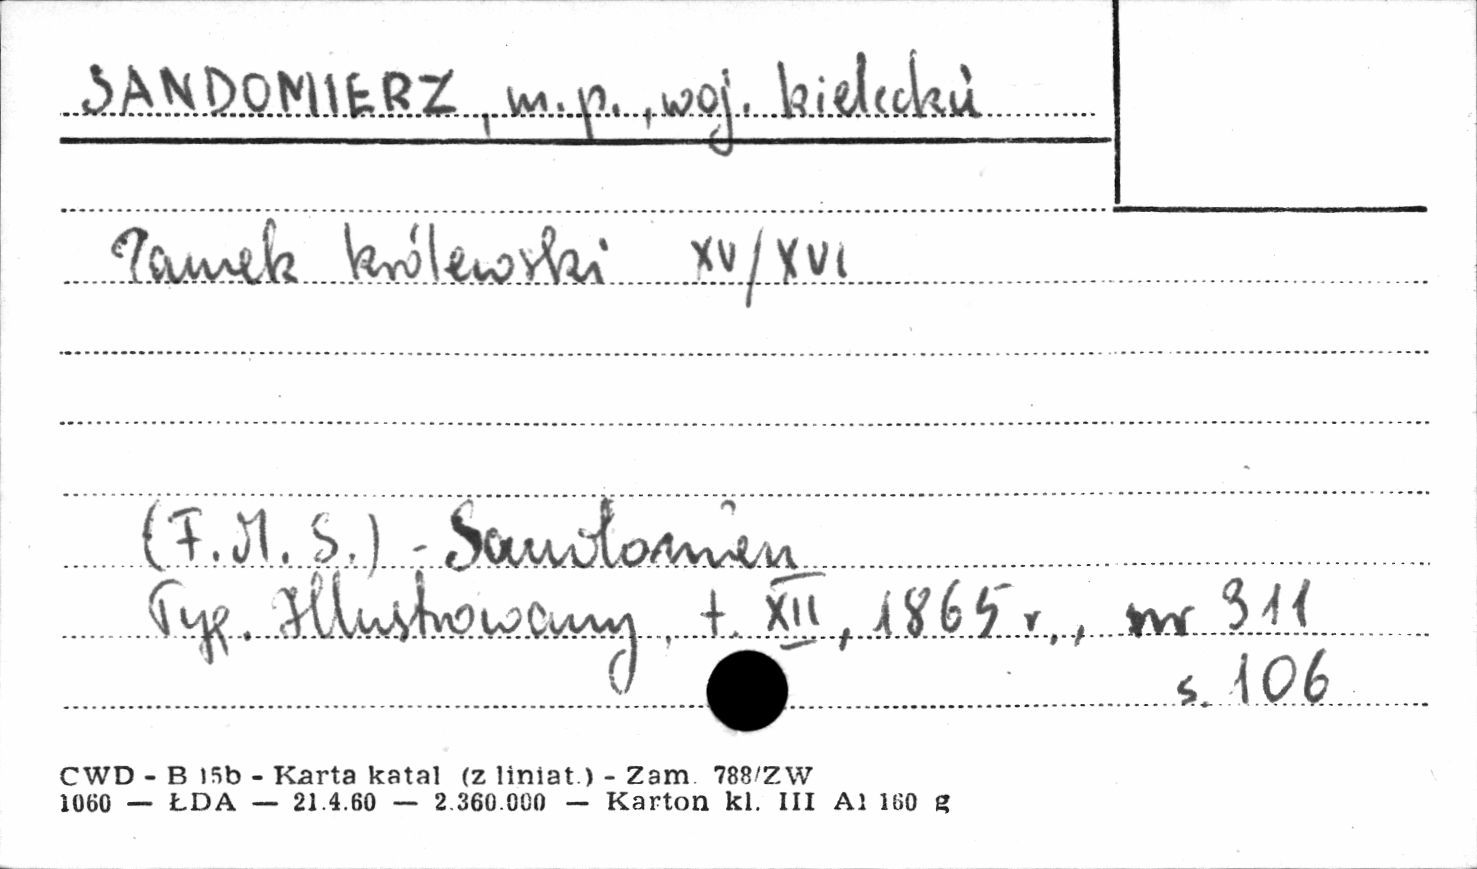 SANDOMIERZ, m.p., woj. kieleckie
Zamek królewski XV/XVI
(F.M.S.) - Sandomierz
Tyg. Illustrowany, t. XII, 1865 r., nr 311
s. 106
CWD - B 15b - Karta katal (z liniat.) - Zam. 788/ZW
1060 — ŁDA — 21.4.60 — 2.360.000 — Karton kl. III A1 160 g